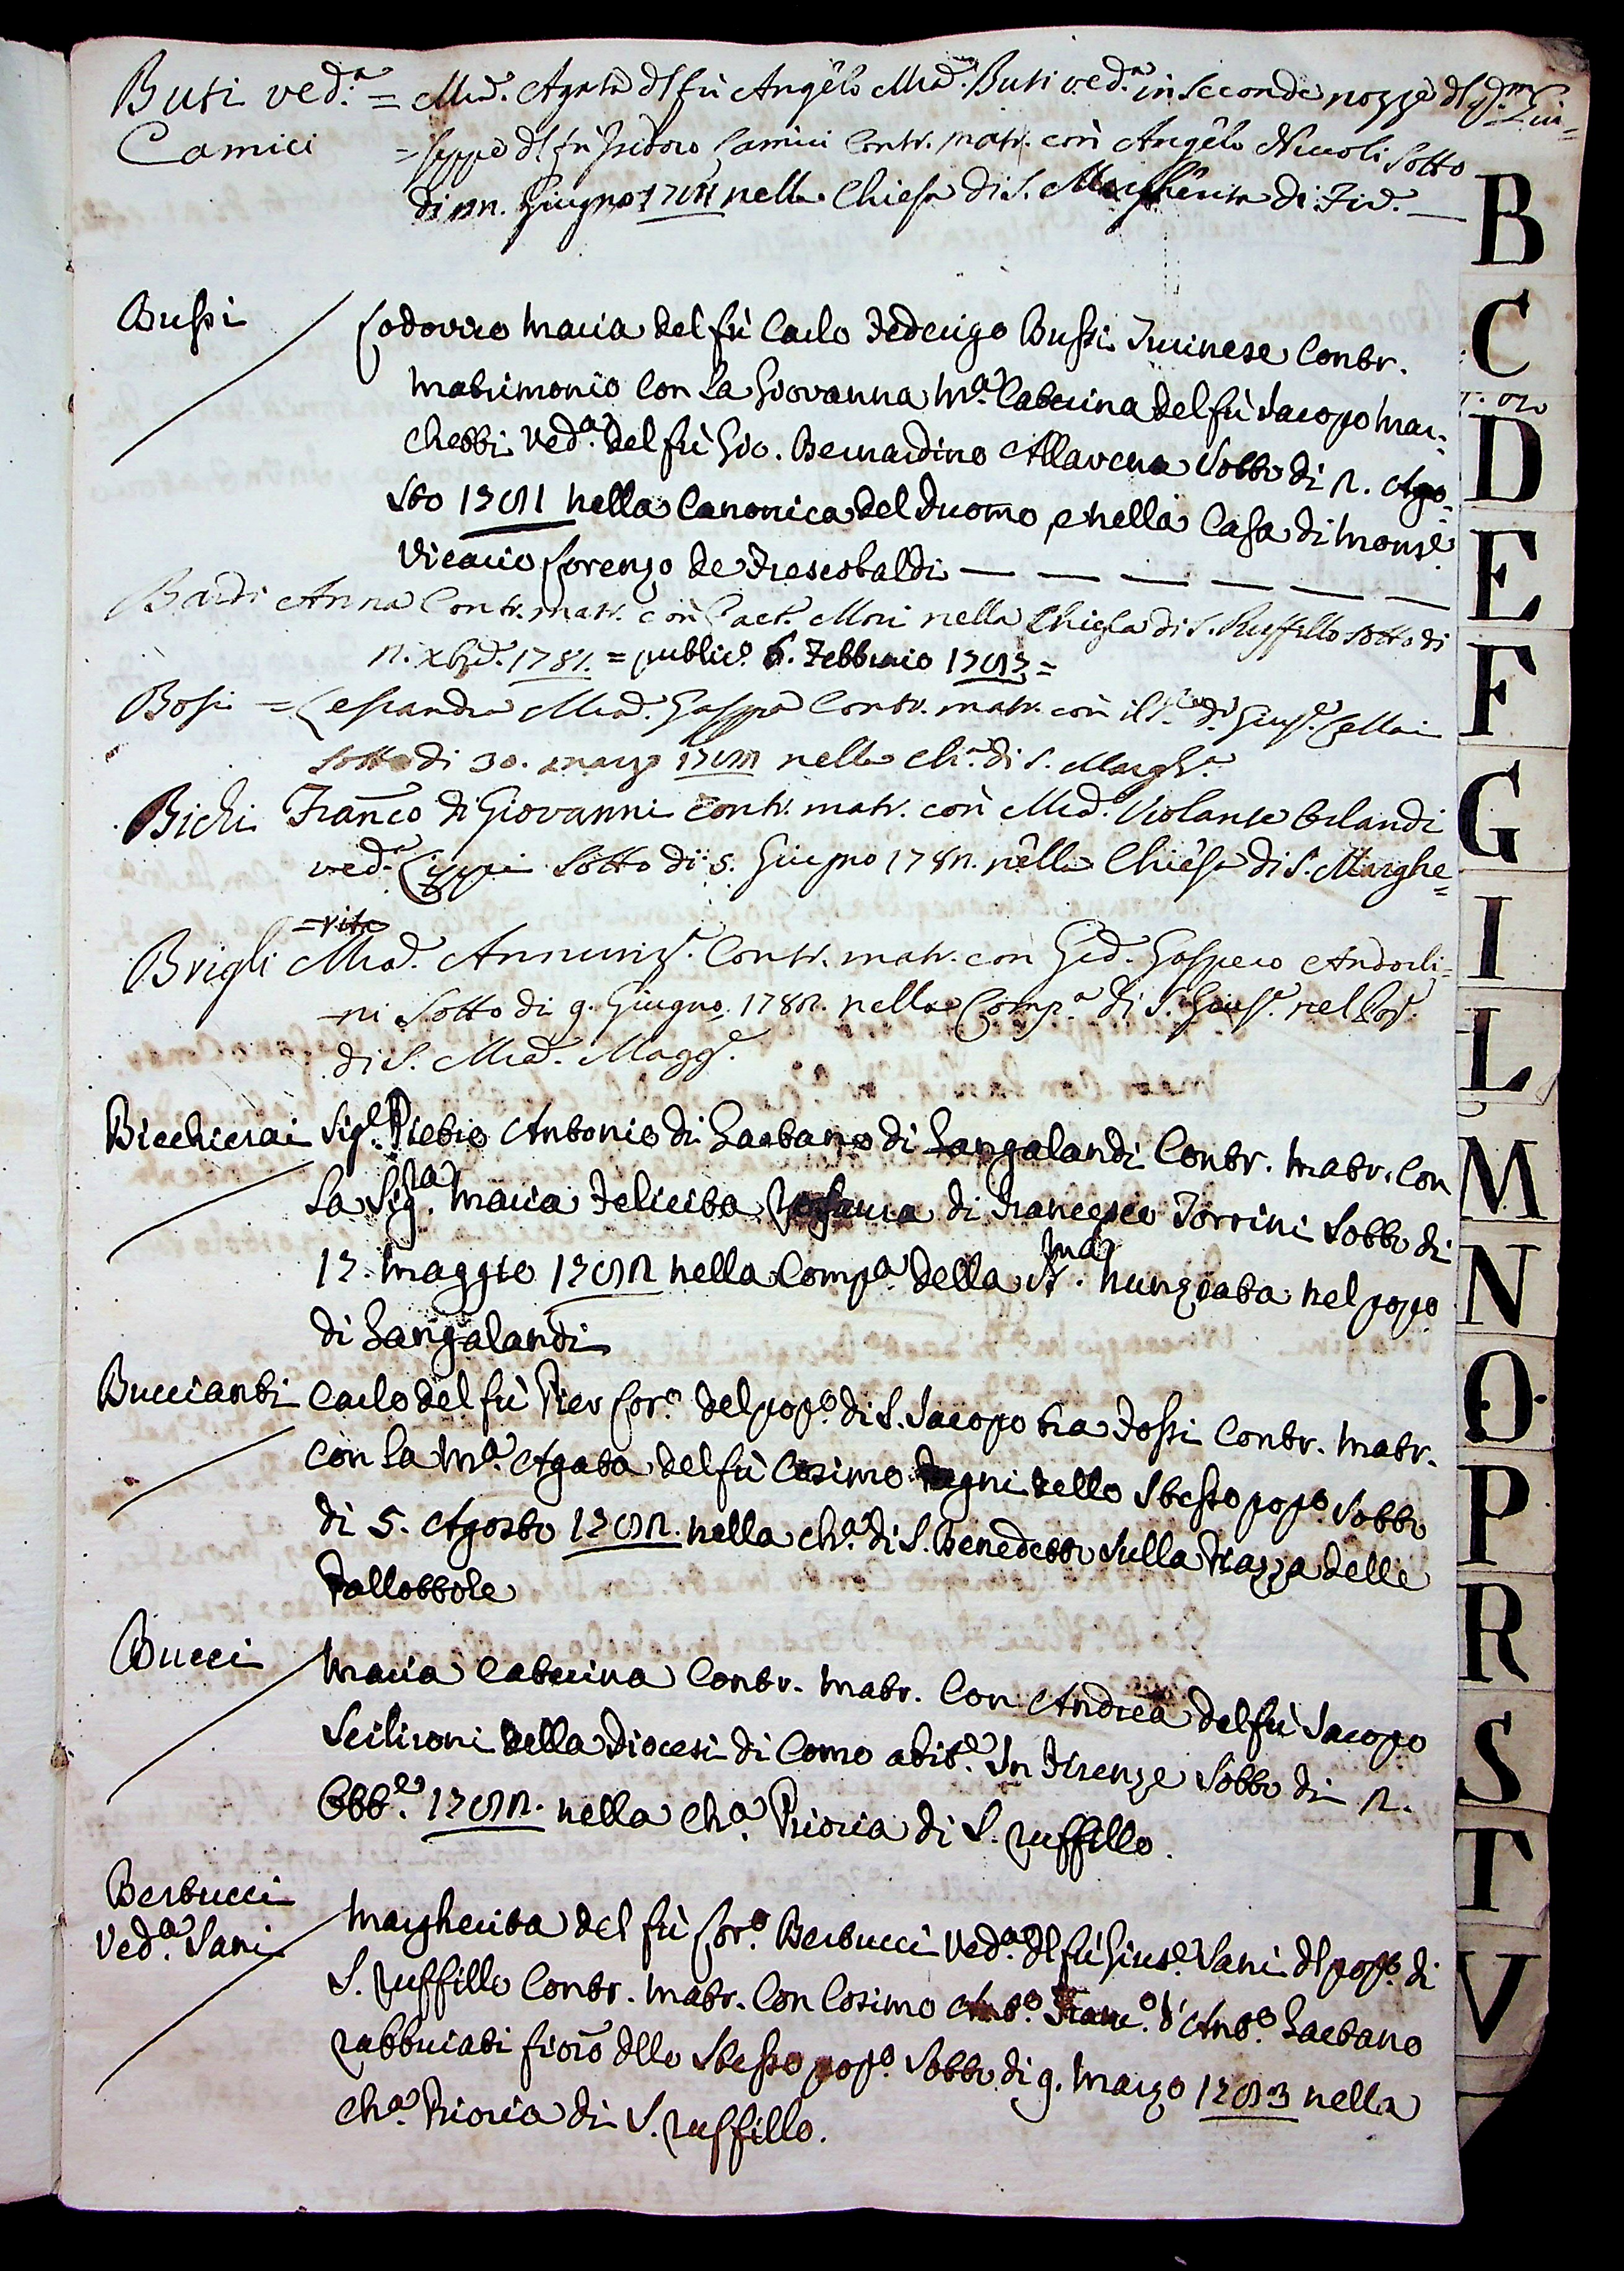 Buti ved.ª = M.ª Agata dl fù Angelo M.ª Buti ved.ª in seconde nozze dl q.m Giu=
Camici =seppe dl fù Isidoro Camici Contr. matr. con Angelo Niccoli Sotto
di Giugno 1781 nella Chiesa di S. Margherita di Fir.
Bussi Lodovico Maria del fù Carlo Federigo Bussi Torinese Contr.
Matrimonio Con La Giovanna M.ª Caterina del fù Jacopo Mar-
chetti Ved.ª del fù Gio. Bernardino Allavena Sotto di 2. Ago-
sto 1781 nella Canonica del Duomo, e nella Casa di Monse.
Vicario Lorenzo de Frescobaldi
Bardi Anna Contr. matr. con Mori nella Chiesa di S. Ruffillo sotto di
2. Xbre. 1781. = public. 6. Febbraio 1783 =
Bosi = M.ª Gasppa Contr. matr. con il S.
Sotto di 30. marzo nella Ch.ª di S. Margh.ª
Bichi Franco di Giovanni Contr. matr. con M.ª Violante Orlandi
ved.ª Cippi Sotto di 5. Giugno 1782. nella Chiesa di S. Marghe=
=rita
Brigli M.ª Annunz.ª Contr. matr. con Gaspero Andorli=
=ni Sotto di 9. Giugno 1782. nella Comp.ª di S. Gius.e nel Pop.
di S. M.ª Magg.e
Bicchierai Sig.e Pietro Antonio di Gaetano di Gangalandi Contr. Matr. Con
La Sig.ra Maria Felicita Rosaura di Francesco Torrini Sotto di
17. Maggio 1782 nella Comp.ª della SS.ma Nunziata nel popo
di Gangalandi
Buccianti Carlo del fù Pier Lor.o del pop.o di S. Jacopo tra Fossi Contr. Matr.
con La M.ª Agata del fù Cosimo Degni dello Stesso popo. Sotto
di 5. Agosto 1782. nella Ch.ª di S. Benedetto Sulla Piazza delle
Pallottole
Bucci Maria Caterina Contr. Matr. Con Andrea del fù Jacopo
Scilironi della Diocesi di Como abit.e In Firenze Sotto di 2.
Obb.e 1782. nella Ch.ª Prioria di S. Ruffillo.
Berbucci Margherita del fù Lor.o Berbucci Ved.ª dl fù Gius.e Sani dl pop.o di
Ved.ª Sani S. Ruffillo Contr. Matr. Con Cosimo Ant.o Franc.o d'Ant.o Gaetano
Rabbuiati fiorō dllo Stesso pop.o Sotto di 9. Marzo 1783 nella
Ch.ª Prioria di S. Ruffillo.
B
C
D
E
F
G
I
L
M
N
O
P
R
S
T
V